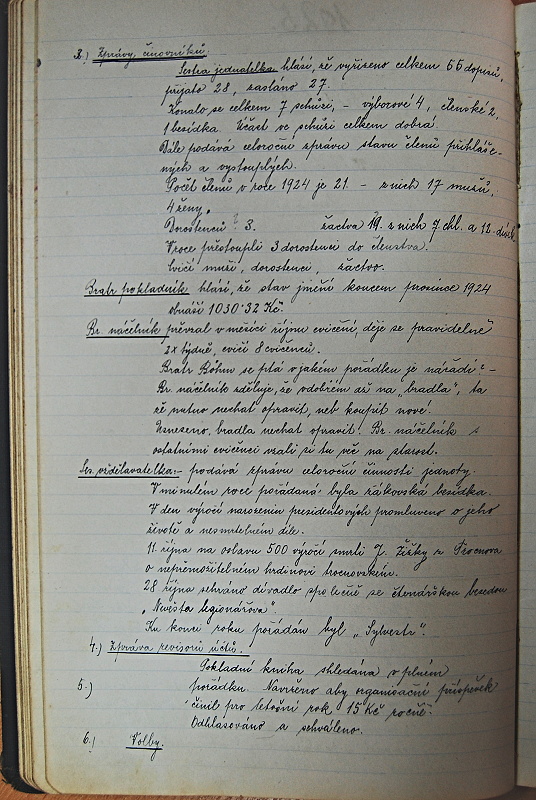 3.) Zprávy činovníků.
Sestra jednatelka hlásí, že vyřízeno celkem 55 dopisů,
přijato 28, zasláno 27.
Konalo se celkem 7 schůzí, – výborové 4, členské 2,
1 besídka. Účast ve schůzi celkem dobrá.
Dále podává celoroční zprávu stavu členů přihláše-
ných a vystouplých.
Počet členů v roce 1924 je 21 – z nich 17 mužů,
4 ženy.
Dorostenců 3. žactva 19. z nich 7 chl. a 12. dívek
V roce přestoupli 3 dorostenci do členstva.
Cvičí muži, dorostenci, žactvo.
Bratr pokladník hlásí, že stav jmění koncem prosince 1924
obnáší 1030·32 Kč.
Br. náčelník převzal v měsíci říjnu cvičení, děje se pravidelně
2x týdně, cvičí 8 cvičenců.
Bratr Böhm se ptá v jakém pořádku je nářadí? –
Br. náčelník sděluje, že v dobrém až na „bradla", ta
že nutno nechat opravit, neb koupit nové.
Usneseno, bradla nechat opravit. Br. náčelník s
ostatními cvičenci vzali si tu věc na starost.
Ses. vzdělavatelka:– podává zprávu celoroční činnosti jednoty.
V minulém roce pořádána byla žákovská besídka.
V den výročí narozenin presidentových promluveno o jeho
životě a nesmrtelném díle.
11. října na oslavu 500 výročí smrti J. Žižky z Trocnova
o nepřemožitelném hrdinovi trocnovském.
28 října sehráno divadlo společně se čtenářskou besedou
„Nevěsta legionářova".
Ku konci roku pořádán byl „Sylvestr".
4.) Zpráva revisorů účtů.
Pokladní kniha shledána v plném
5.) pořádku. Navrženo aby organisační příspěvek
činil pro letošní rok 15 Kč ročně.
Odhlasováno a schváleno.
6.) Volby.